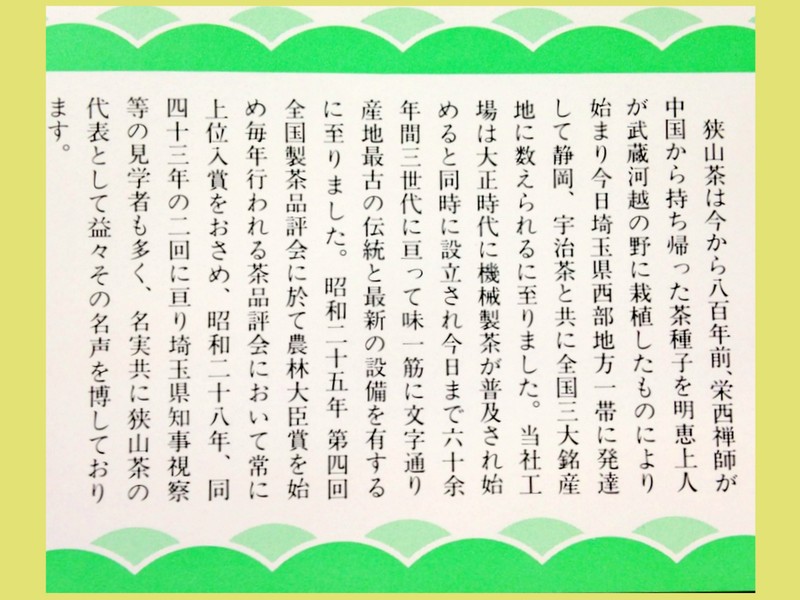 狭山茶は今から八百年前、栄西禅師が
中国から持ち帰った茶種子を明恵上人
が武蔵河越の野に栽植したものにより
始まり今日埼玉県西部地方一帯に発達
して静岡、宇治茶と共に全国三大銘産
地に数えられるに至りました。当社工
場は大正時代に機械製茶が普及され始
めると同時に設立され今日まで六十余
年間三世代に亘って味一筋に文字通り
産地最古の伝統と最新の設備を有する
に至りました。昭和二十五年第四回
全国製茶品評会に於て農林大臣賞を始
め毎年行われる茶品評会において常に
上位入賞をおさめ、昭和二十八年、同
四十三年の二回に亘り埼玉県知事視察
等の見学者も多く、名実共に狭山茶の
代表として益々その名声を博しており
ます。